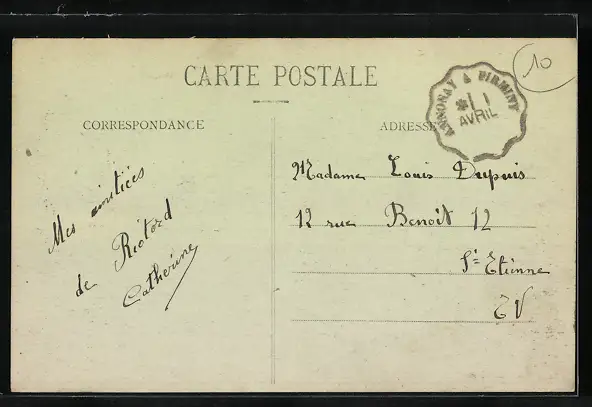 10
CARTE POSTALE
ANNONAY A FIRMINY
* 1 1
AVRIL
CORRESPONDANCE
ADRESSE
Mes amitiées
de Riotord
Catherine
Madame Louis Dupuis
12 rue Benoit 12
St-Etienne
EV